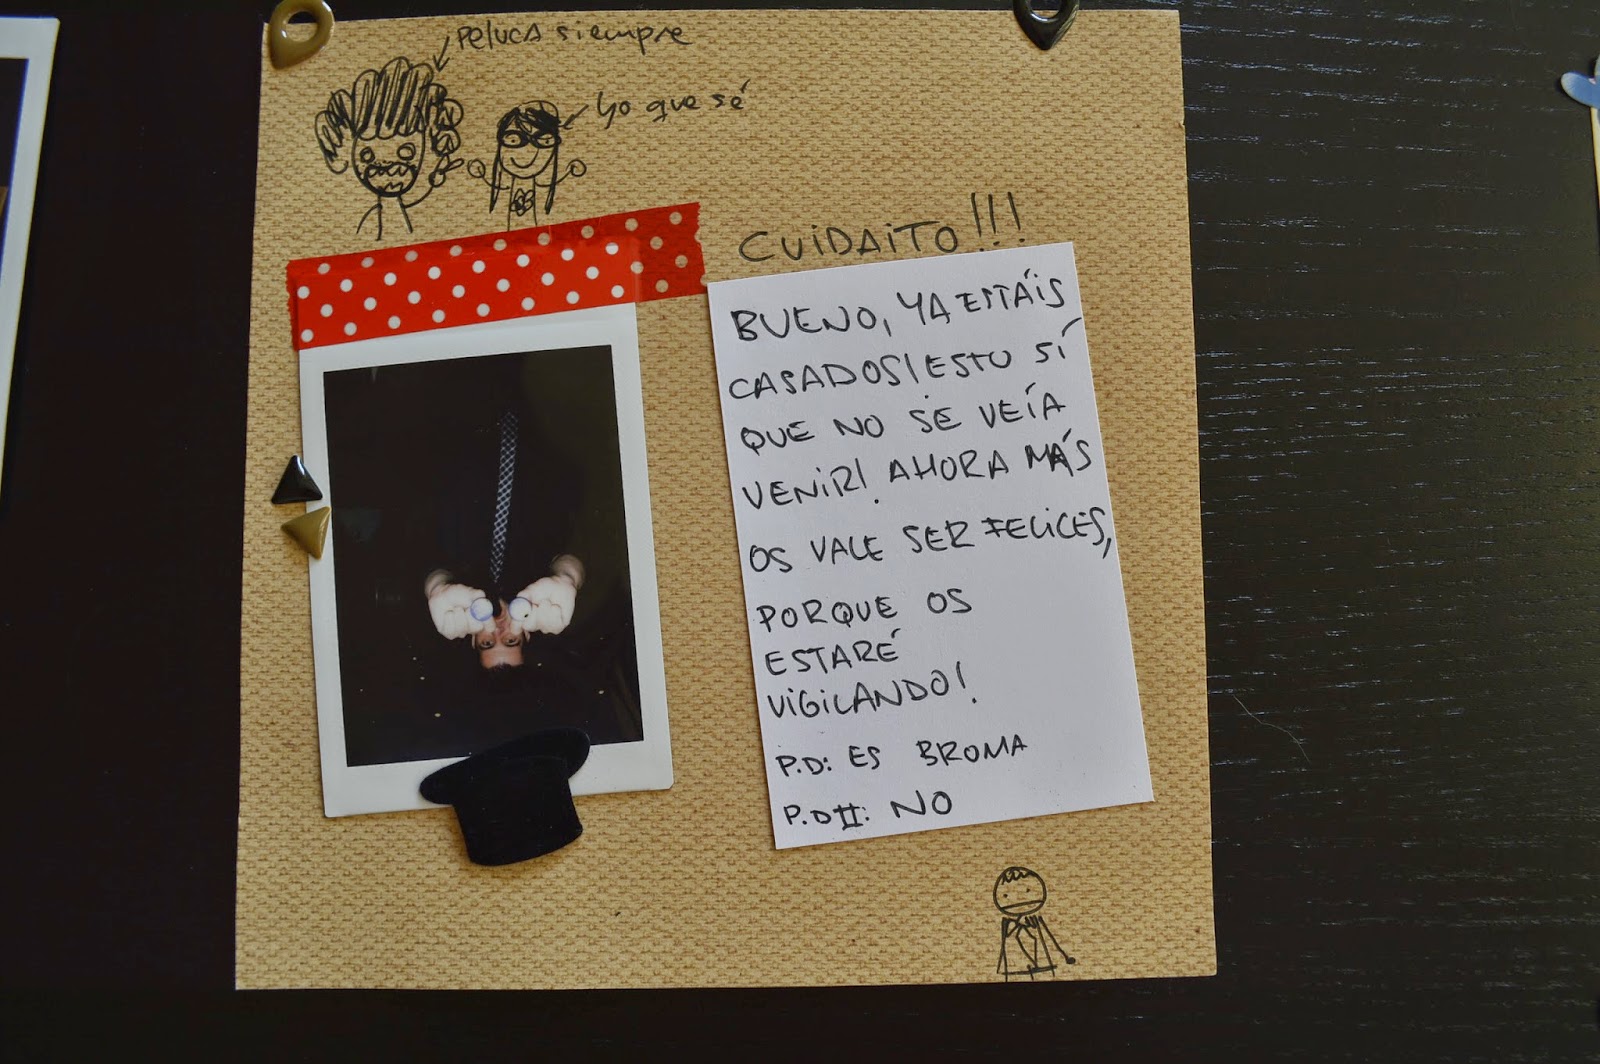 Peluca siempre
Yo que sé
CUIDAITO!!!
BUENO, YA ESTÁIS
CASADOS! ESTO SÍ
QUE NO SE VEÍA
VENIR! AHORA MÁS
OS VALE SER FELICES,
PORQUE OS
ESTARÉ
VIGILANDO!
P.D: ES BROMA
P.D II: NO